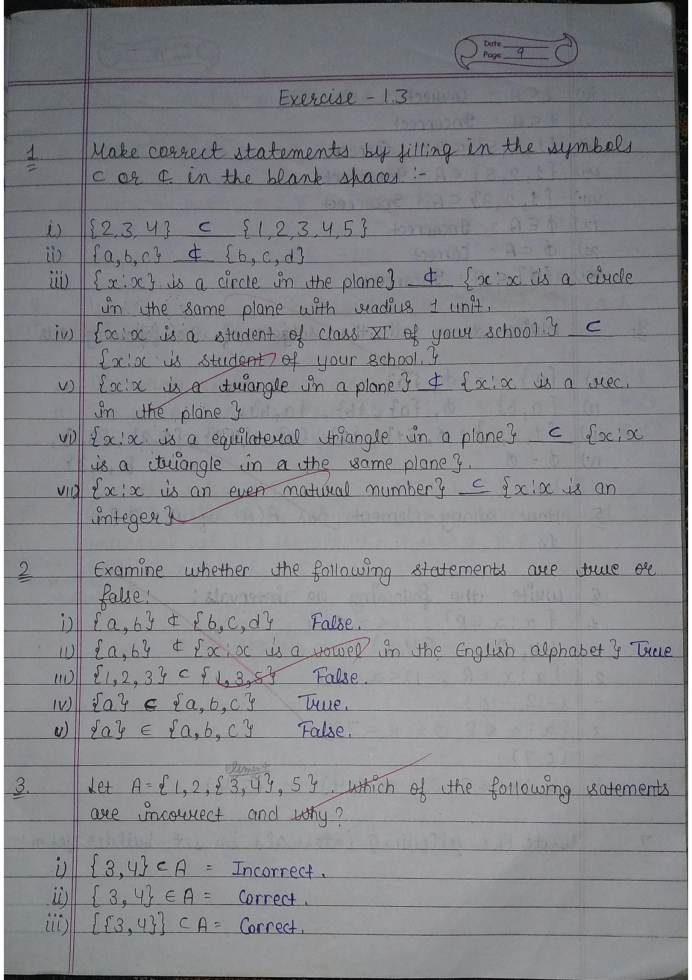 Date
Page 9
Exercise - 1.3
1 Make correct statements by filling in the symbols
⊂ or ⊄ in the blank spaces :-
i) {2,3,4} ⊂ {1,2,3,4,5}
ii) {a,b,c} ⊄ {b,c,d}
iii) {x:x} is a circle in the plane} ⊄ {x:x is a circle
in the same plane with radius 1 unit.
iv) {x:x is a student of class XI of your school.} ⊂
{x:x is student of your school.}
v) {x:x is a triangle in a plane} ⊄ {x:x is a rec.
in the plane}
vi) {x:x is a equilateral triangle in a plane} ⊂ {x:x
is a triangle in a the same plane}.
vii) {x:x is an even natural number} ⊂ {x:x is an
integer}
2 Examine whether the following statements are true or
false:
i) {a,b} ⊄ {b,c,d} False.
ii) {a,b} ⊄ {x:x is a vowel in the English alphabet} True
iii) {1,2,3} ⊂ {1,3,5} False.
iv) {a} ⊂ {a,b,c} True.
v) {a} ∈ {a,b,c} False.
element
3. Let A={1,2,{3,4},5}. Which of the following satements
are incorrect and why?
i) {3,4} ⊂ A = Incorrect.
ii) {3,4} ∈ A = Correct.
iii) {{3,4}} ⊂ A = Correct.